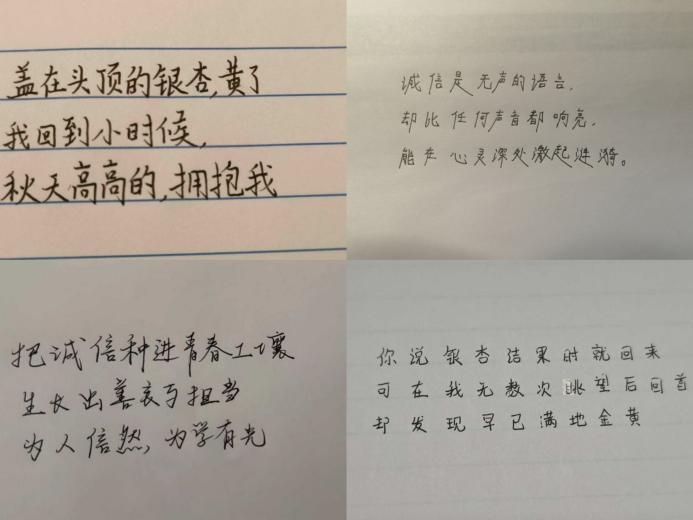 盖在头顶的银杏,黄了
我回到小时候,
秋天高高的,拥抱我
诚信是无声的语言,
却比任何声音都响亮,
能在心灵深处激起涟漪。
把诚信种进青春土壤
生长出善哀与担当
为人信然,为学有光
你说银杏结果时就回来
可在我无数次眺望后回首
却发现早已满地金黄